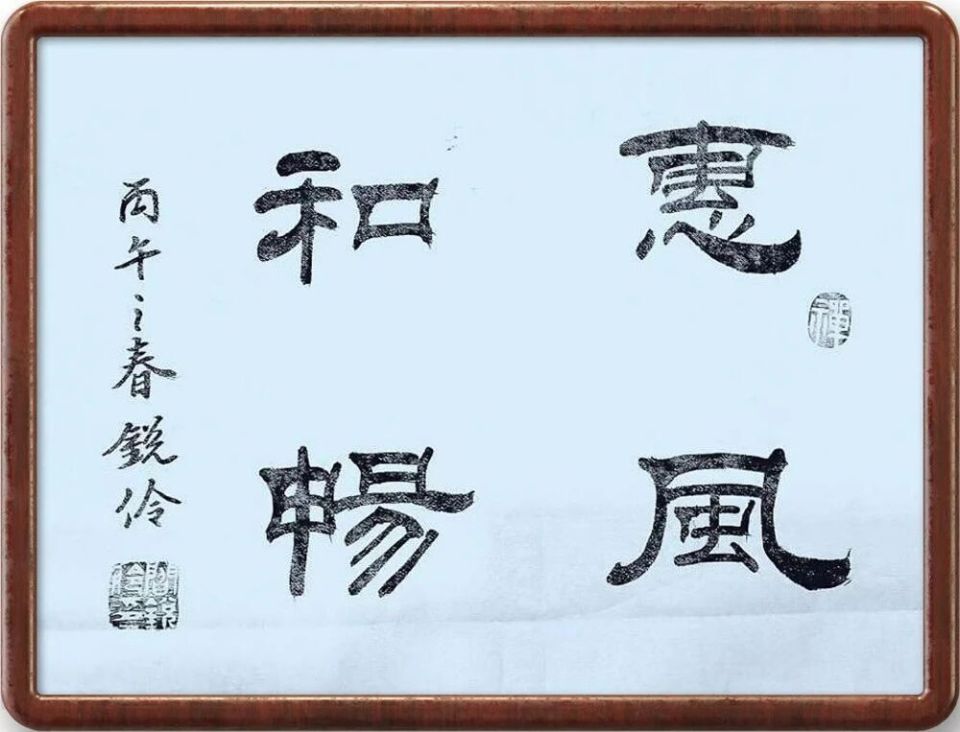 惠風
和暢
丙午之春銳伶
禪